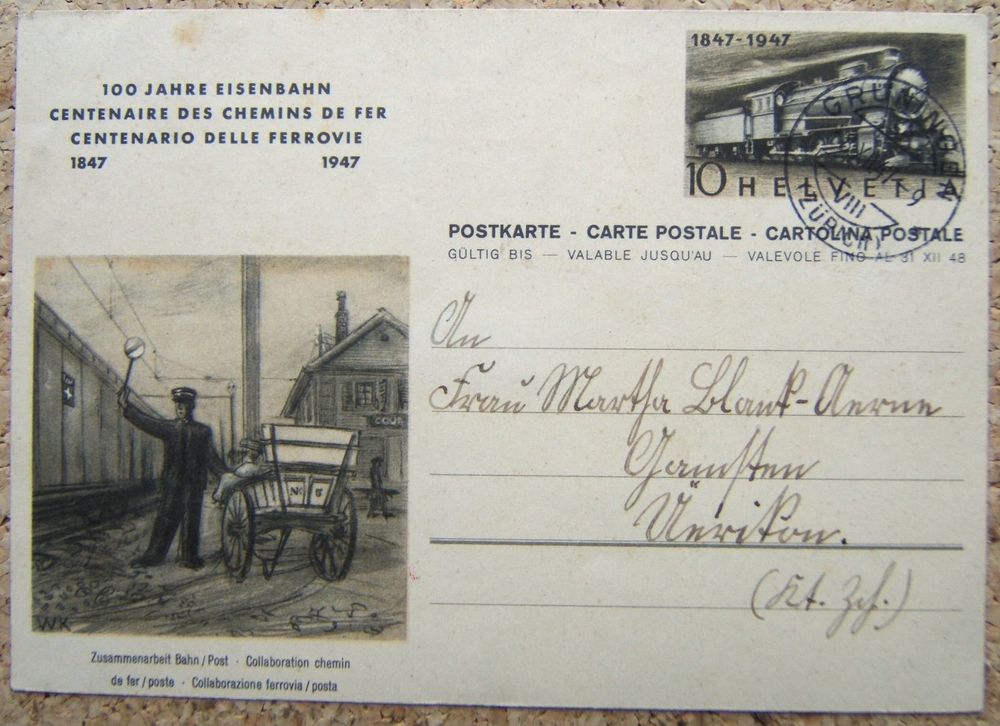 100 JAHRE EISENBAHN
CENTENAIRE DES CHEMINS DE FER
CENTENARIO DELLE FERROVIE
1847 1947
1847-1947
10 HELVETIA
GRÜNINGEN
VIII
(ZÜRICH)
POSTKARTE - CARTE POSTALE - CARTOLINA POSTALE
GÜLTIG BIS — VALABLE JUSQU'AU — VALEVOLE FINO AL 31 XII 48
An
Frau Martha Blank-Aerne
Gamsten
Uerikon.
(Kt. Zch.)
No 5
WK
Zusammenarbeit Bahn / Post · Collaboration chemin
de fer / poste · Collaborazione ferrovia / posta